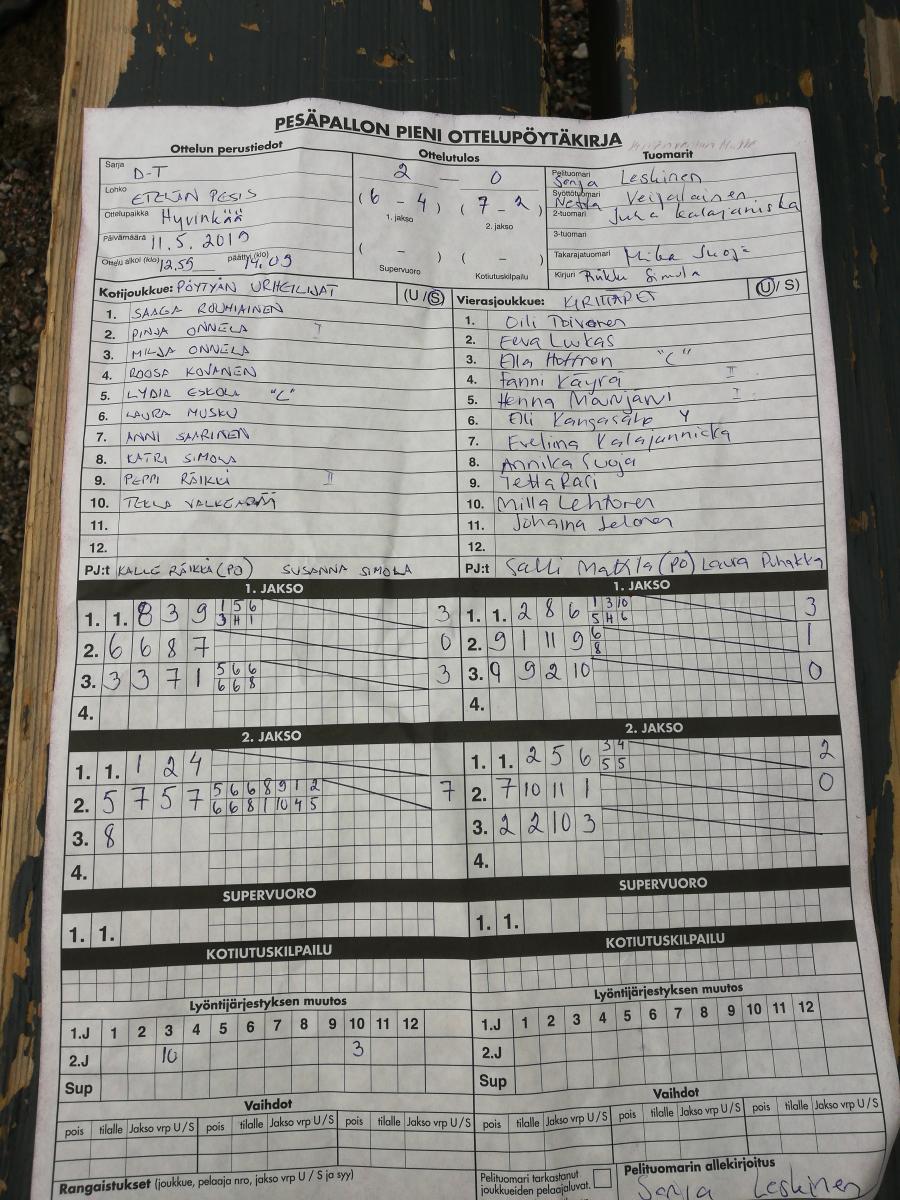 PESÄPALLON PIENI OTTELUPÖYTÄKIRJA
Ottelun perustiedot
Sarja D-T
Lohko ETELÄN PESIS
Ottelupaikka Hyvinkää
Päivämäärä 11.5.2019
Ottelu alkoi (klo) 12.59 päättyi (klo) 14.09
Ottelutulos
2 — 0
(6 - 4) (7 - 2)
1. jakso 2. jakso
( - ) ( - )
Supervuoro Kotiutuskilpailu
Tuomarit
Pelituomari Sonja Leskinen
Syöttötuomari Neska Veijalainen
2-tuomari Juha Kalajanniska
3-tuomari
Takarajatuomari Mika Suoja
Kirjuri Riikka Simola
Kotijoukkue: PÖYTYÄN URHEILIJAT (U/S)
1. SAAGA ROUHIAINEN
2. PINJA ONNELA I
3. MILJA ONNELA
4. ROOSA KOVANEN
5. LYDIA ESKOLA "C"
6. LAURA MUSKU
7. ANNI SAARINEN
8. KATRI SIMOLA
9. PEPPI RÄIKKÄ II
10. TEKLA
11.
12.
PJ:t KALLE RÄIKKÄ (PO) SUSANNA SIMOLA
Vierasjoukkue: KIRITTÄRET (U/S)
1. Oili Toivonen
2. Eeva Lukas
3. Ella Hoffren "C"
4. Fanni Käyrä II
5. Henna I
6. Elli Kangassalo Y
7. Eveliina Kalajanniska
8. Annika Suoja
9. Jetta Rasi
10. Milla Lehtonen
11. Johanna Jelonen
12.
PJ:t Salli Mattila (PO) Laura Puhakka
1. JAKSO
1. 1. 8 3 9 1 5 6 3
3 4 1
2. 6 6 8 7 0
3. 3 3 7 1 5 6 6 3
6 6 8
4.
1. JAKSO
1. 1. 2 8 6 1 3 10 3
5 4 6
2. 9 1 11 9 6 1
8
3. 9 9 2 10 0
4.
2. JAKSO
1. 1. 1 2 4
2. 5 7 5 7 5 6 6 8 9 1 2 7
6 6 8 1 10 4 5
3. 8
4.
2. JAKSO
1. 1. 2 5 6 3 4 2
5 5
2. 7 10 11 1 0
3. 2 2 10 3
4.
SUPERVUORO
1. 1.
SUPERVUORO
1. 1.
KOTIUTUSKILPAILU
KOTIUTUSKILPAILU
Lyöntijärjestyksen muutos
1.J 1 2 3 4 5 6 7 8 9 10 11 12
2.J 10 3
Sup
Lyöntijärjestyksen muutos
1.J 1 2 3 4 5 6 7 8 9 10 11 12
2.J
Sup
Vaihdot
pois tilalle Jakso vrp U/S pois tilalle Jakso vrp U/S pois tilalle Jakso vrp U/S
Vaihdot
pois tilalle Jakso vrp U/S pois tilalle Jakso vrp U/S pois tilalle Jakso vrp U/S
Rangaistukset (joukkue, pelaaja nro, jakso vrp U / S ja syy)
Pelituomari tarkastanut
joukkueiden pelaajaluvat.
Pelituomarin allekirjoitus
Sonja Leskinen